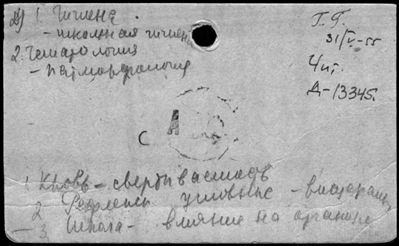 1. Гигиена
- школьная гигиена
2. Гематология
- патморфология
Г. Г.
31/V-55
4 чт.
Д-13345.
С А
1 Кровь - свертываемость
2 Рефлексы условные -
3. Школа - влияние на организм